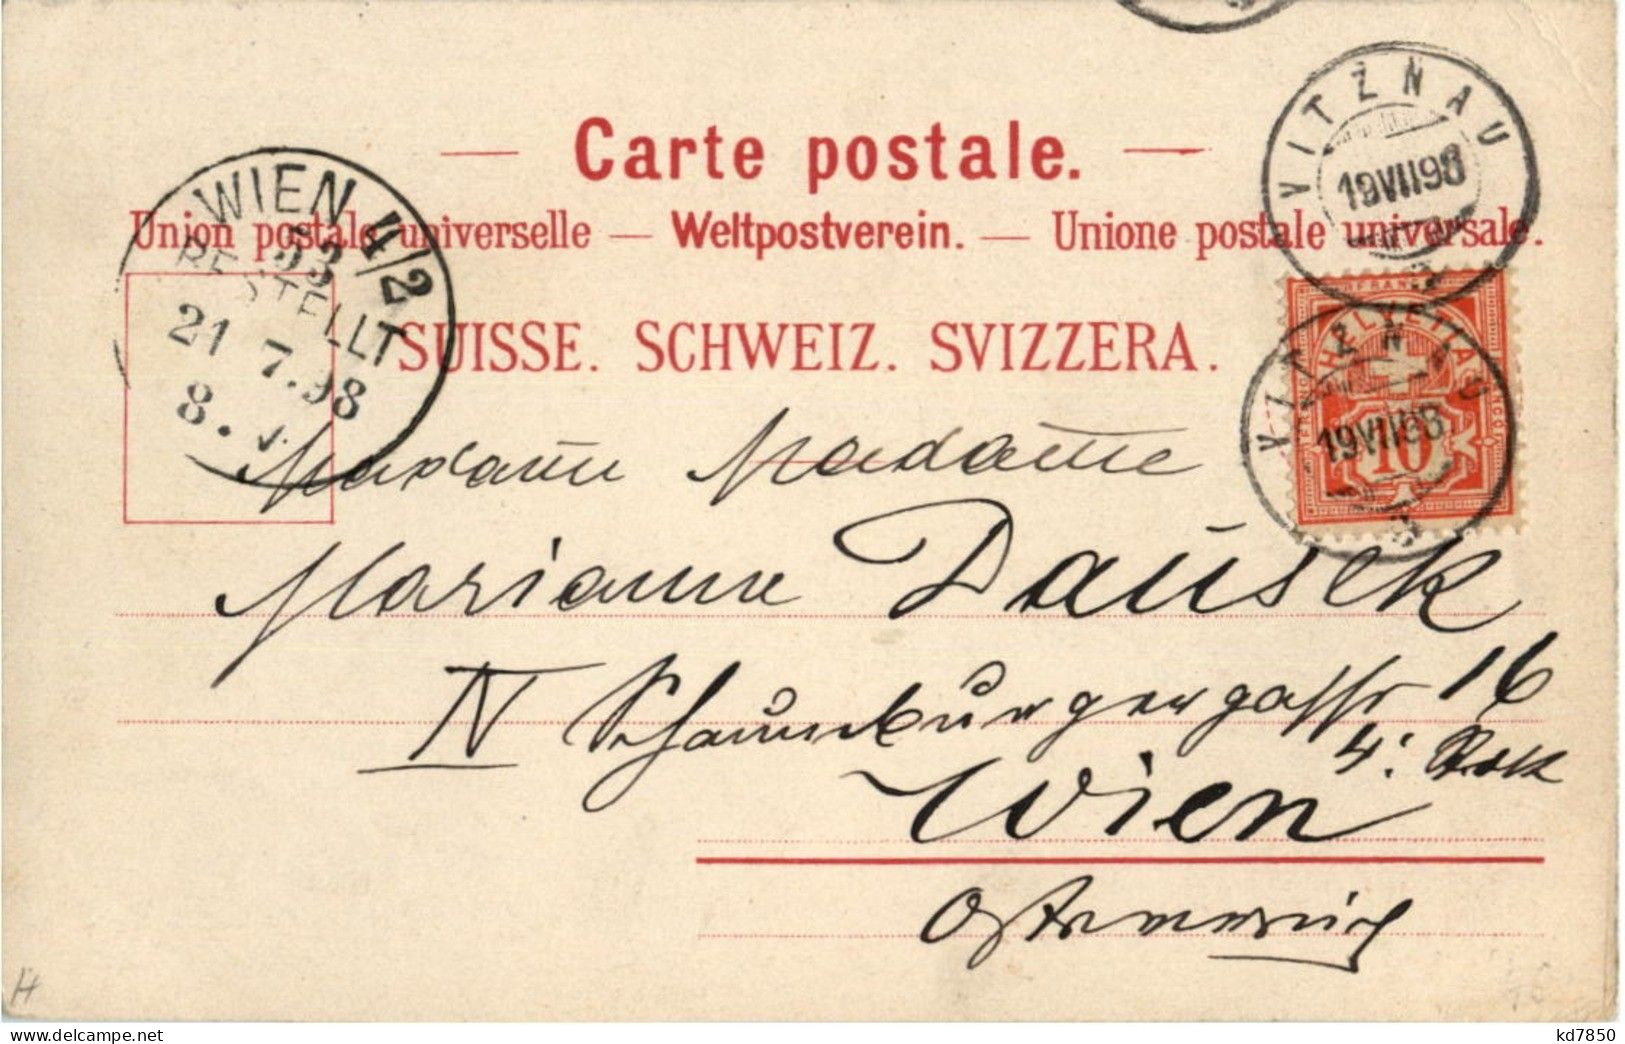 Carte postale.
Union postale universelle — Weltpostverein. — Unione postale universale.
SUISSE. SCHWEIZ. SVIZZERA.
VITZNAU
19 VII 98
WIEN 4/2
53
BESTELLT
21 7.98
8.
HELVETIA
FRANCO
VITZNAU
19 VII 98
10
Madame Madame
Marianne Dausek
IV Schaumburgergasse 16
4:
Wien
Österreich
H
kd7850